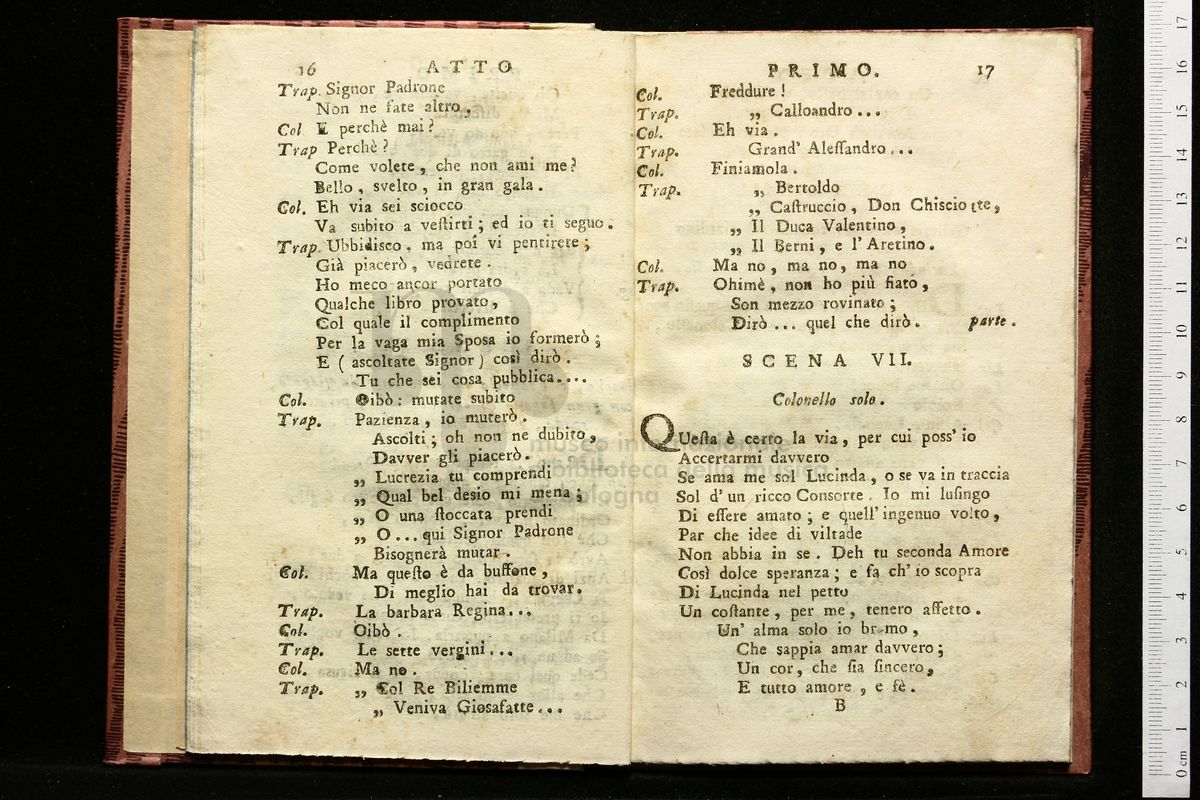 16 ATTO
Trap. Signor Padrone
Non ne fate altro.
Col E perchè mai?
Trap Perchè?
Come volete, che non ami me?
Bello, svelto, in gran gala.
Col. Eh via sei sciocco
Va subito a veſtirti; ed io ti seguo.
Trap. Ubbidisco, ma poi vi pentirete;
Già piacerò, vedrete.
Ho meco ancor portato
Qualche libro provato,
Col quale il complimento
Per la vaga mia Sposa io formerò;
E (ascoltate Signor) così dirò.
Tu che sei cosa pubblica....
Col. Oibò: mutate subito
Trap. Pazienza, io muterò.
Ascolti; oh non ne dubito,
Davver gli piacerò.
„ Lucrezia tu comprendi
„ Qual bel desio mi mena;
„ O una ſtoccata prendi
„ O... qui Signor Padrone
Bisognerà mutar.
Col. Ma queſto è da buffone,
Di meglio hai da trovar.
Trap. La barbara Regina...
Col. Oibò.
Trap. Le sette vergini...
Col. Ma no.
Trap. „ Col Re Biliemme
„ Veniva Giosafatte...
PRIMO. 17
Col. Freddure!
Trap. „ Calloandro...
Col. Eh via.
Trap. Grand' Aleſſandro...
Col. Finiamola.
Trap. „ Bertoldo
„ Caſtruccio, Don Chisciotte,
„ Il Duca Valentino,
„ Il Berni, e l'Aretino.
Col. Ma no, ma no, ma no
Trap. Ohimè, non ho più fiato,
Son mezzo rovinato;
Dirò... quel che dirò. parte.
SCENA VII.
Colonello solo.
QUeſta è certo la via, per cui poss' io
Accertarmi davvero
Se ama me sol Lucinda, o se va in traccia
Sol d' un ricco Consorte. Io mi luſingo
Di eſſere amato; e quell' ingenuo volto,
Par che idee di viltade
Non abbia in se. Deh tu seconda Amore
Così dolce speranza; e fa ch' io scopra
Di Lucinda nel petto
Un coſtante, per me, tenero affetto.
Un' alma solo io bramo,
Che sappia amar davvero;
Un cor, che ſia ſincero,
E tutto amore, e fè.
B
museo internazionale
e biblioteca della musica
di bologna
0 cm 1 2 3 4 5 6 7 8 9 10 11 12 13 14 15 16 17